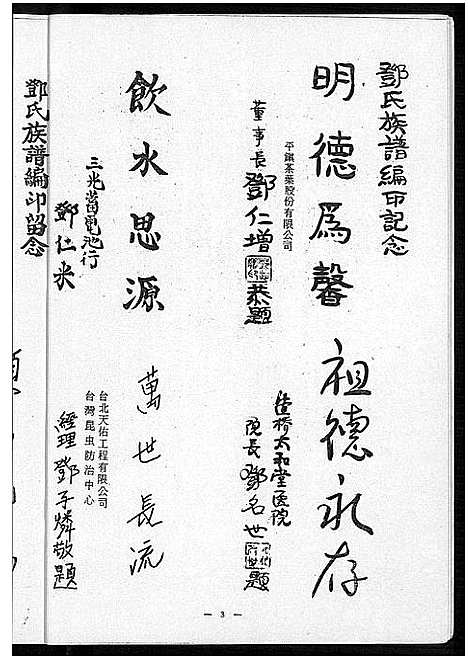 鄧氏族譜編印記念
明德爲馨
平鎮茶葉股份有限公司
董事長鄧仁增
恭題
祖德永存
佳橋太和堂医院
院長鄧名世
題
飲水思源
三光蓄電池行
鄧仁米
萬世長流
台北天佑工程有限公司
台灣昆虫防治中心
經理鄧子燐敬題
— 3 —
鄧氏族譜編印留念